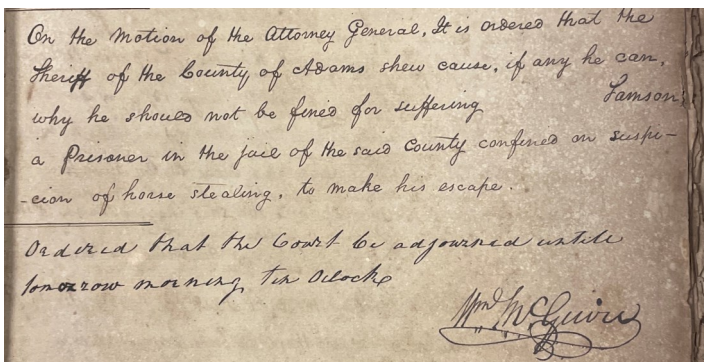 On the Motion of the Attorney General, It is ordered that the
Sheriff of the County of Adams shew cause, if any he can,
why he should not be fined for suffering Lamson,
a Prisoner in the jail of the said County confined on suspi-
-cion of horse stealing, to make his escape.
Ordered that the Court be adjourned untill
tomorrow morning ten Oclock
Wm. McGuire